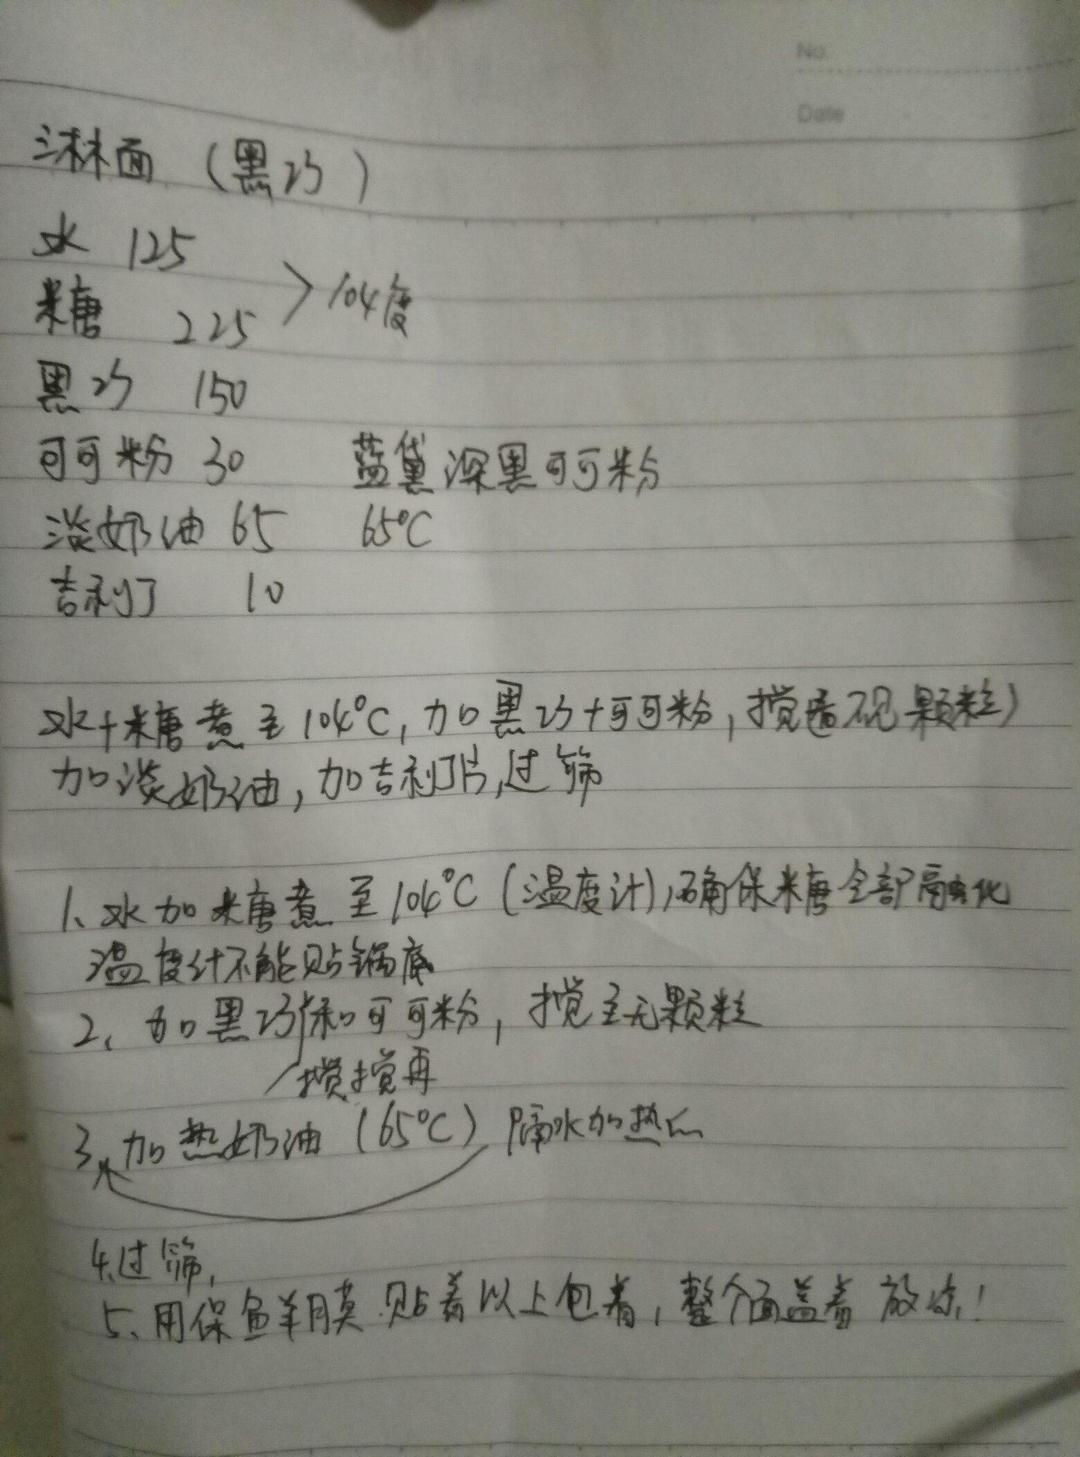 No.
Date
淋面（黑巧）
水 125
糖 225 >104度
黑巧 150
可可粉 30 蓝黛深黑可可粉
淡奶油 65 65°C
吉利丁 10
水+糖煮至104°C，加黑巧+可可粉，搅 不见颗粒）
加淡奶油，加吉利丁片，过筛
1、水加糖煮至104°C（温度计），确保糖全部融化
温度计不能贴锅底
2、加黑巧和可可粉，搅至无颗粒
搅搅再
3、加热奶油（65°C）隔水加热
4、过筛，
5、用保鲜膜贴着以上包着，整个面盖着放凉！